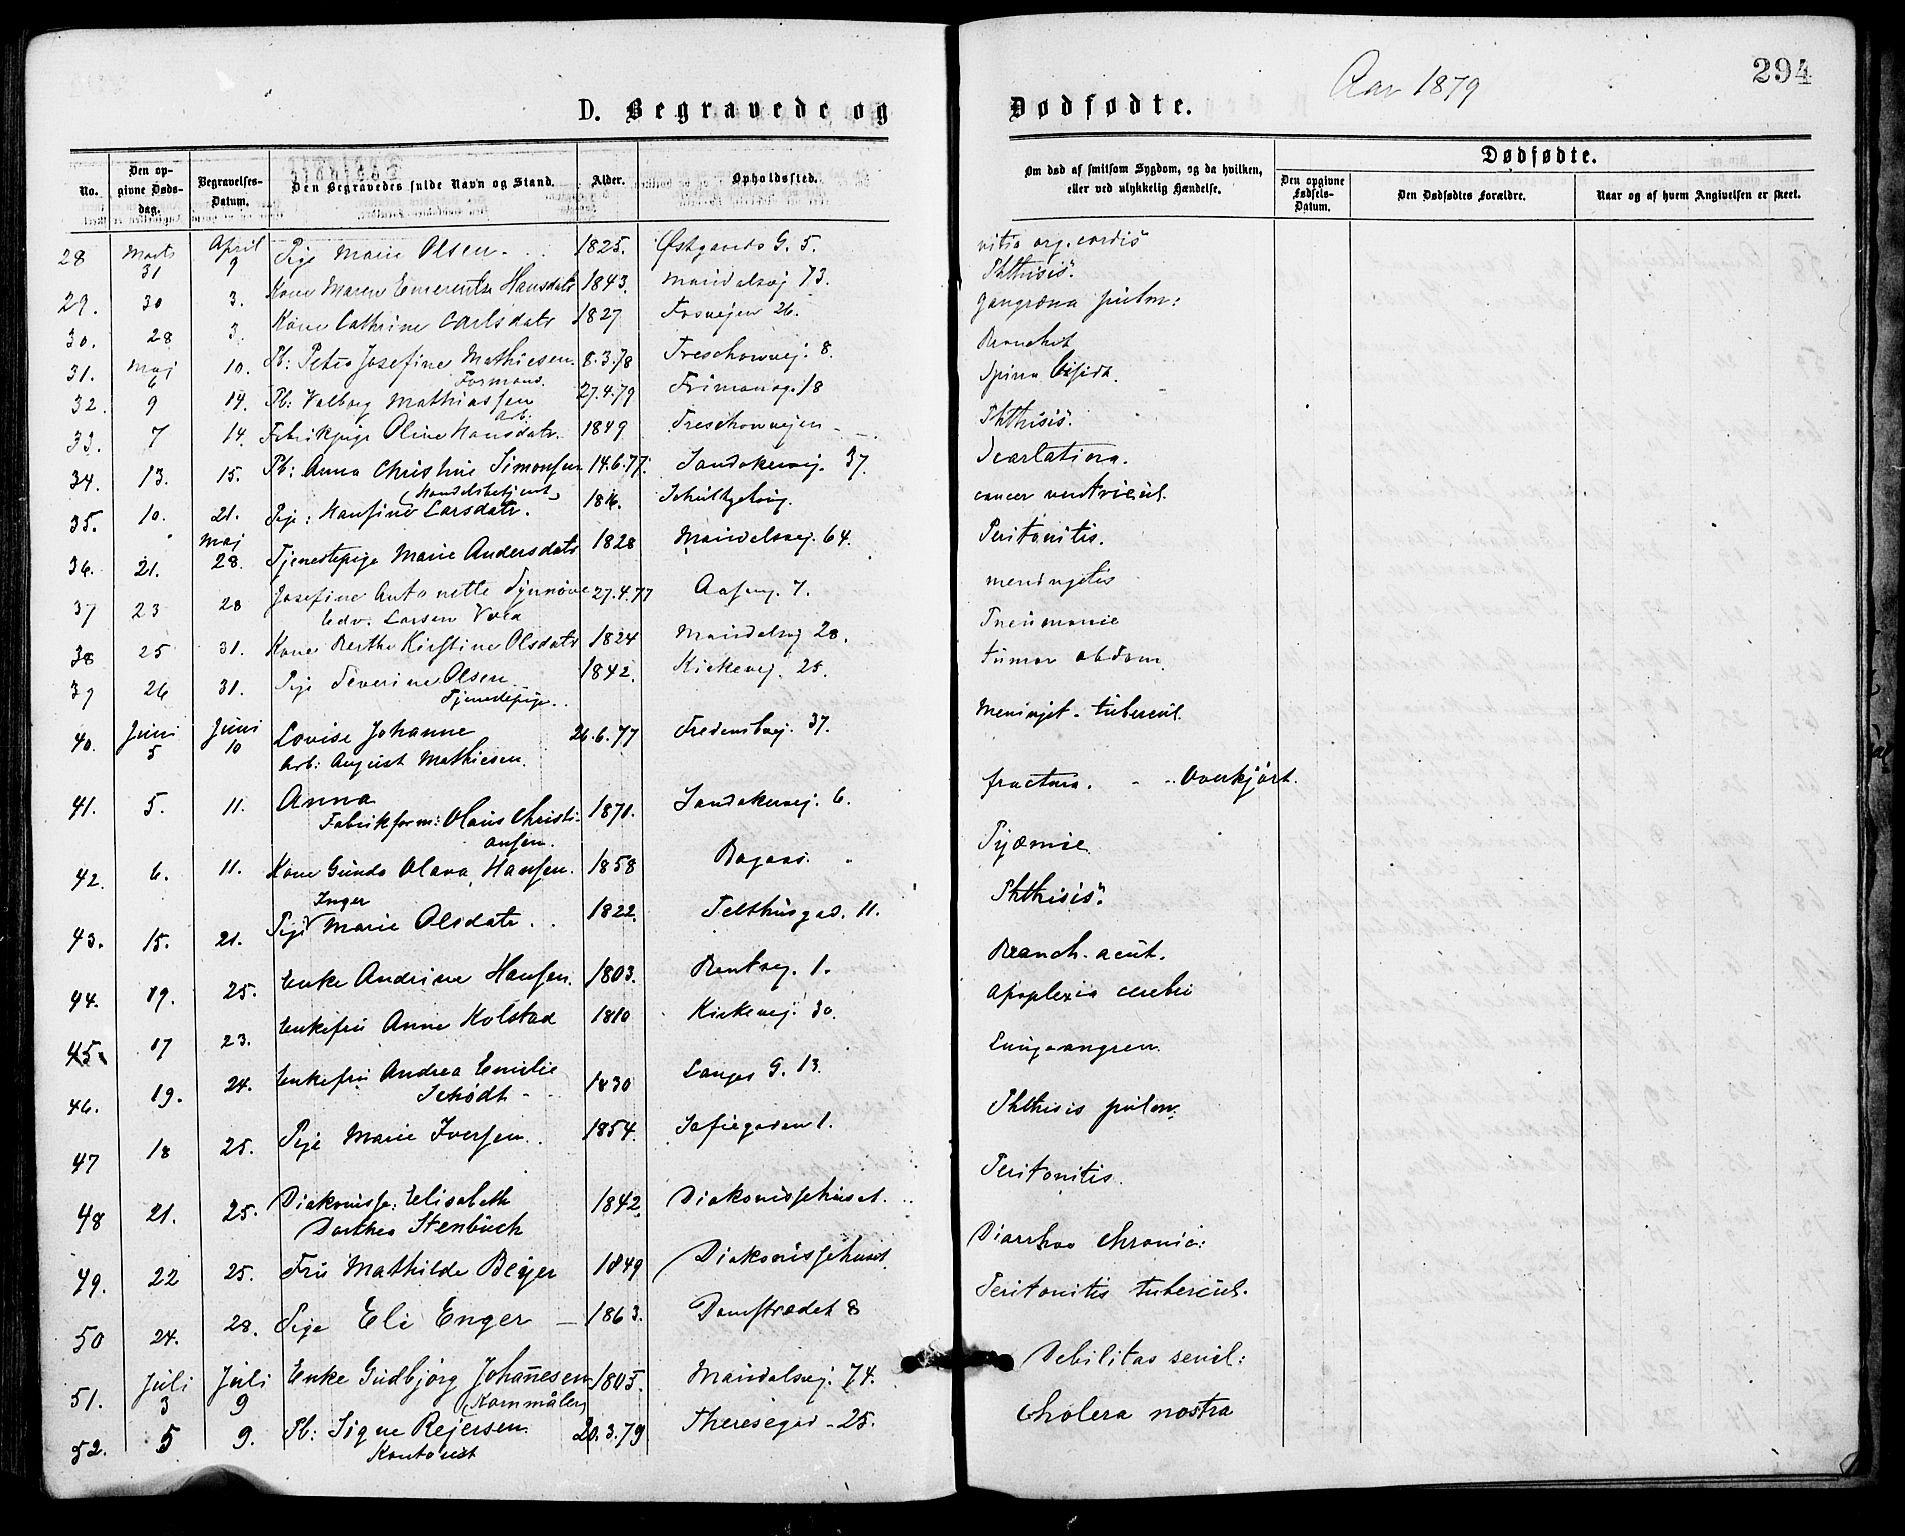 Aar 1879
294
D. Begravede og Dødfødte.
No.
Den opgivne Dødsdag.
Begravelses-Datum.
Den Begravedes fulde Navn og Stand.
Alder.
Opholdssted.
Om død af smitsom Sygdom, og da hvilken, eller ved ulykkelig Hændelse.
Dødfødte.
Den opgivne Fødsels-Datum.
Den Dødfødtes Forældre.
Naar og af hvem Angivelsen er skeet.
28 Marts 31 April 9 Pige Marie Olsen. 1825. Østgaards G. 5. vitio org. cordis
29. 30 3. Kone Maren Emerentse Hansdatr 1843. Maridalsvej 73. Phthisis.
30. 28 3. Kone Cathrine Carlsdatr 1827 Fosvejen 26. gangræna pulm:
31. Maj 6 10. Pb: Petra Josefine Mathiesen 8.3.78 Treschowvej. 8. Bronchit
Formand.
32. 9 14. Pb: Valborg Mathiassen 27.4.79 18 Spina bifida.
Arb:
33. 7 14. Fabrikpige Oline Hansdatr. 1849 Treschowvejen Phthisis.
34. 13. 15. Pb: Anna Christine Simonsen 14.6.77. Sandakervej. 37. Scarlatina.
(Handelsbetjent)
35. 10. 21. Pige: Hansine Larsdatr. 1816. cancer ventricul.
36. 21. Maj 28. Tjenestepige Marie Andersdatr 1828 Maridalsvej. 64. Peritonitis.
37 23 28 Josefine Antonette Synnøve 27.4.77 Aasvej. 7. meningitis
Edv. Larsen
38 25 31. Kone Berthe Kirstine Olsdatr 1824 Maridalsvej 28. Pneumonie
39 26 31. Pige Severine Olsen 1842. Kirkevej. 25. tumor abdom.
Tjenestepige.
40. Juni 5 Juni 10 Lovise Johanne 26.6.77 Fredensbvej. 37. Meningit. tubercul.
Arb: August Mathiesen.
41. 5. 11. Anna 1871. Sandakervej. 6. fractura. - - Overkjørt.
Fabrikform: Olaus Christiansen.
42. 6. 11. Kone Gunda Olava Hansen. 1858 Pyæmie
43. 15. 21. Pige Inger Marie Olsdatr. 1822. Telthusgad. 11. Phthisis.
44. 19. 25. Enke Andrine Hansen. 1803. 1. Bronch. acut.
45. 17 23. Enkefru Anne Kolstad 1810 Kirkevej. 30. Apoplexia cerebri
46. 19. 24. Enkefru Andrea Emilie 1830 Langes G. 13. Lungeangren.
Schødt
47 18 25. Pige Marie Iversen. 1854. Sofiegaden 1. Phthisis pulm.
48 21. 25. Diakonisse: Elisabeth 1842. Diakonissehuset. Peritonitis.
Dorthea Stenbuch
49. 22 25. Fru Mathilde Beyer 1849 Diakonissehuset. Diarrhoe chronic:
50 24. 28. Pige Eli Enger 1863. Damstrædet 8 Peritonitis tubercul.
51. Juli 3 Juli 9 Enke Gudbjørg Johannesen 1805. Maridalsvej. 74. Debilitas senil:
(Kornmåler)
52. 5 9. Pb: Signe Rejersen 20.3.79 Theresegad - 25. Cholera nostra
Kontorist